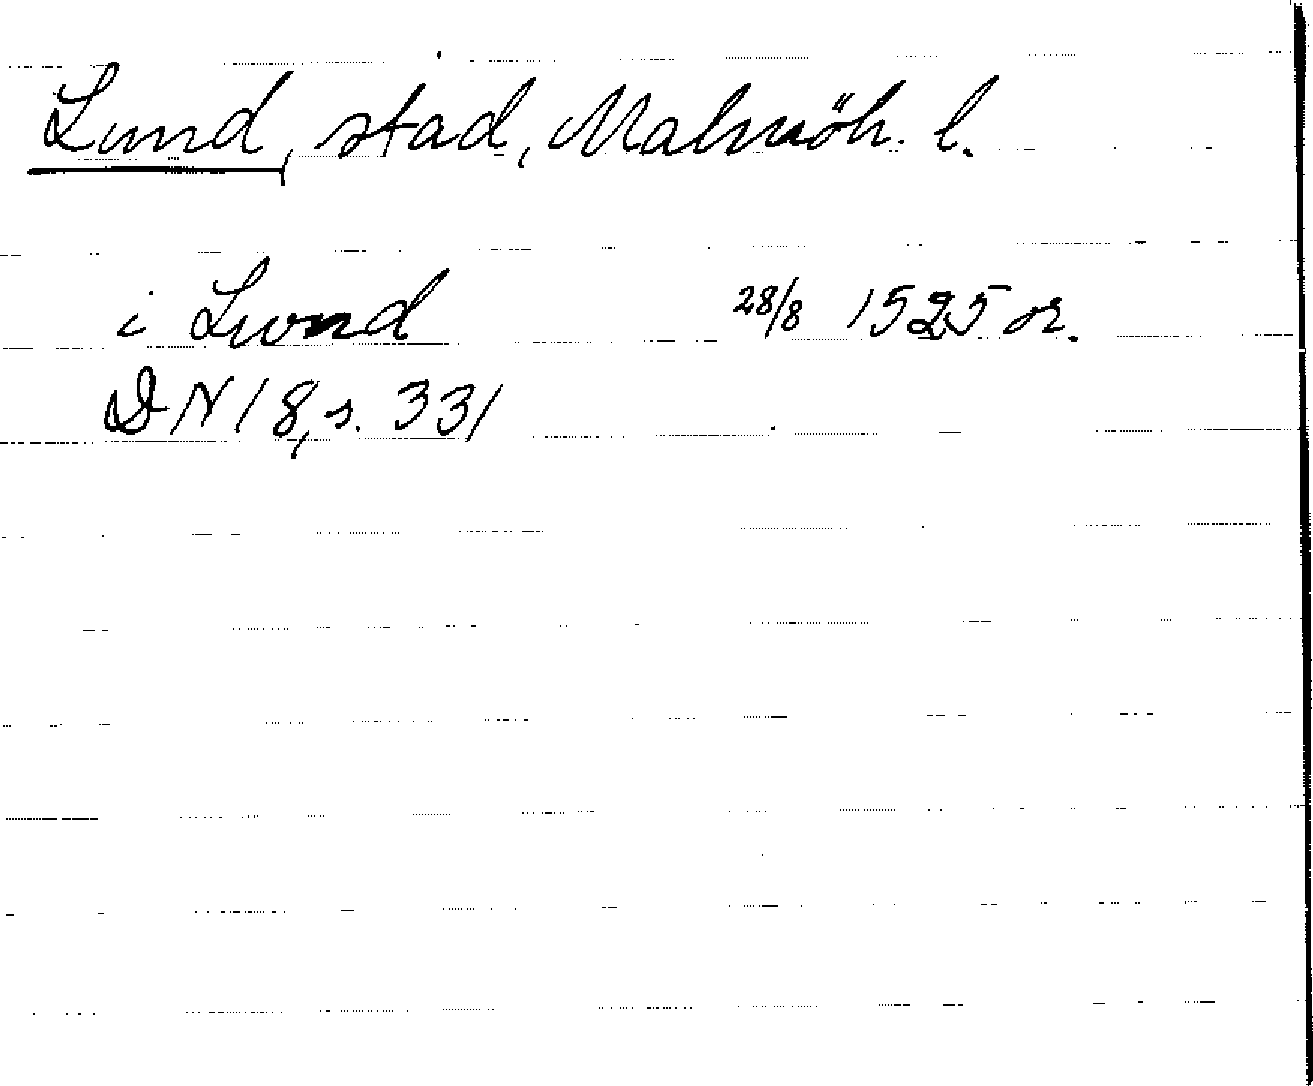 Lund, stad, Malmöh. l.
i Lwnd 28/8 1525 or.
DN 18, s. 331